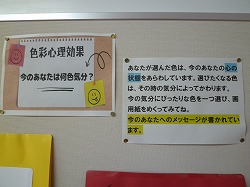 色彩心理効果
今のあなたは何色気分？
あなたが選んだ色は、今のあなたの心の
状態をあらわしています。選びたくなる色
は、その時の気分によってかわります。
今の気分にぴったりな色を一つ選び、画
用紙をめくってみてね。
今のあなたへのメッセージが書かれてい
ます。